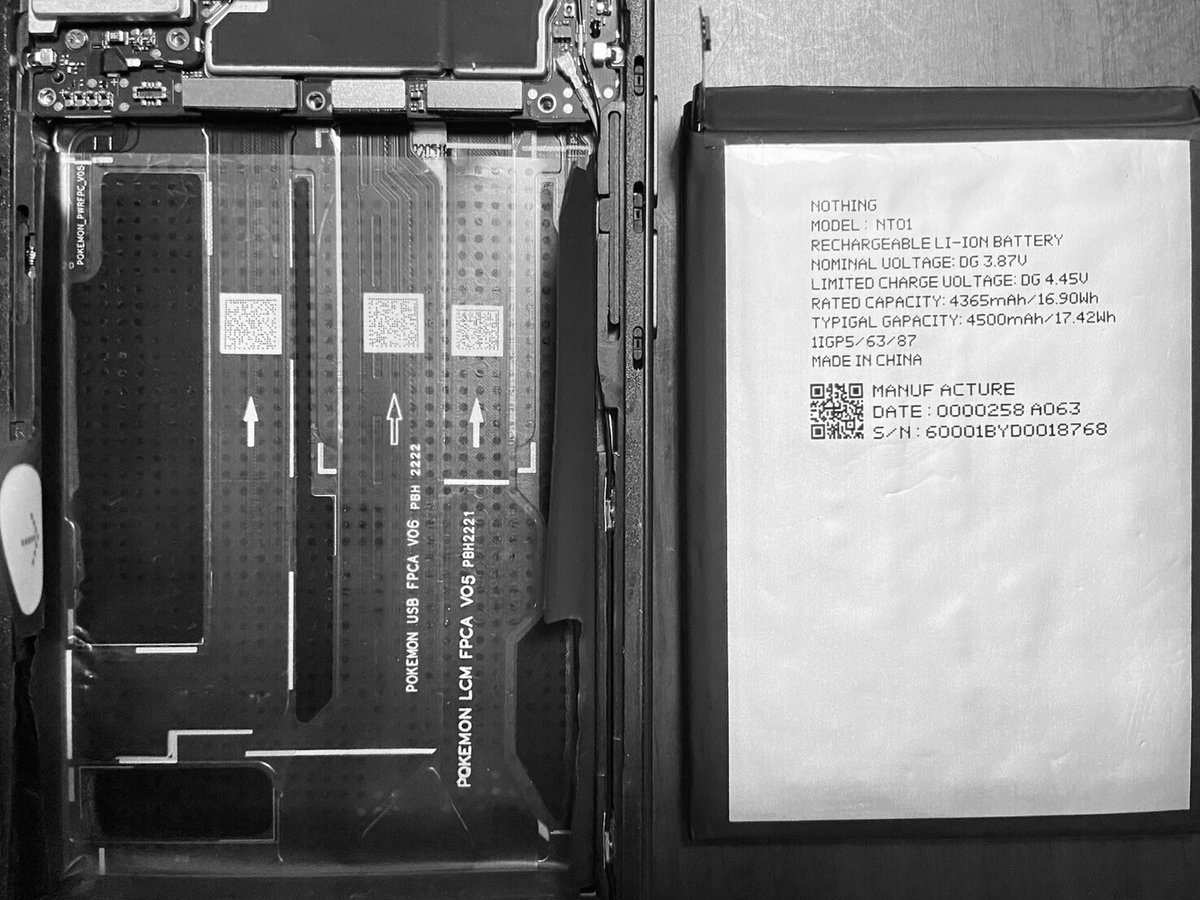 POKEMON_PWRFPC_V05
POKEMON USB FPCA V06 PBH 2222
POKEMON LCM FPCA V05 PBH2221
NOTHING
MODEL : NT01
RECHARGEABLE LI-ION BATTERY
NOMINAL UOLTAGE: DG 3.87V
LIMITED CHARGE UOLTAGE: DG 4.45V
RATED CAPACITY: 4365mAh/16.90Wh
TYPIGAL GAPACITY: 4500mAh/17.42Wh
1IGP5/63/87
MADE IN CHINA
MANUF ACTURE
DATE : 0000258 A063
S/N : 60001BYD0018768